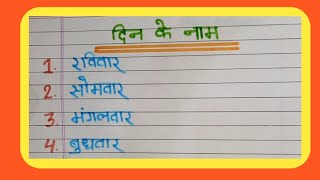 दिन के नाम
1. रविवार
2. सोमवार
3. मंगलवार
4. बुधवार